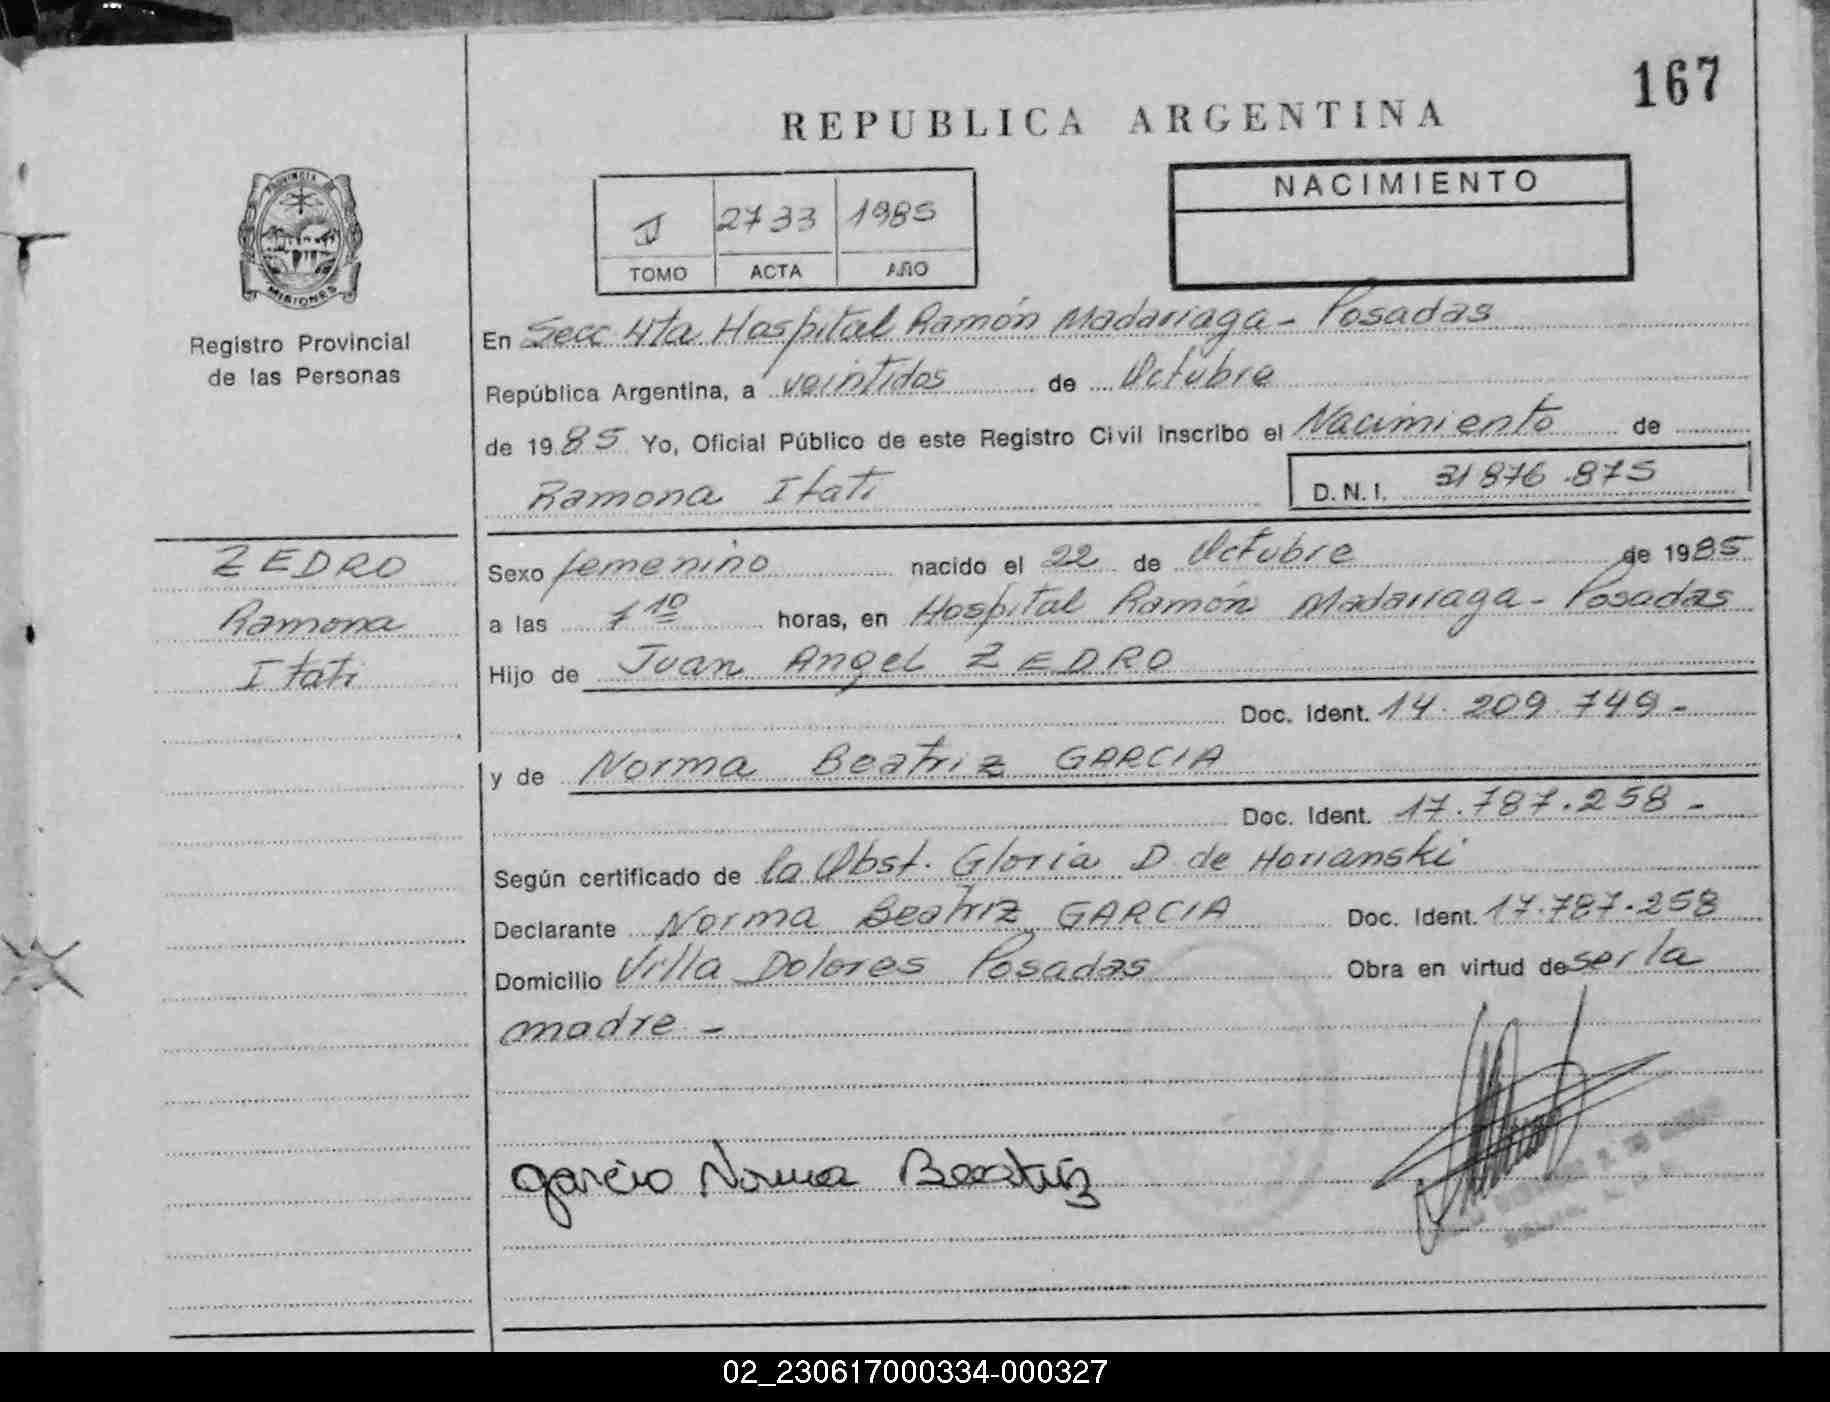 167
REPUBLICA ARGENTINA
PROVINCIA DE
MISIONES
Registro Provincial
de las Personas
2733 1985
TOMO ACTA AÑO
NACIMIENTO
En Secc 4ta Hospital Ramón Madariaga - Posadas
República Argentina, a veintidos de Octubre
de 1985 Yo, Oficial Público de este Registro Civil inscribo el Nacimiento de
Ramona Itati
D.N.I. 31876.875
ZEDRO
Ramona
Itati
Sexo femenino nacido el 22 de Octubre de 1985
a las 1 10 horas, en Hospital Ramón Madariaga - Posadas
Hijo de Juan Angel ZEDRO
Doc. Ident. 14.209.749-
y de Norma Beatriz GARCIA
Doc. Ident. 17.787.258-
Según certificado de la Obst. Gloria D. de Horianski
Declarante Norma Beatriz GARCIA Doc. Ident. 17.787.258
Domicilio Villa Dolores Posadas Obra en virtud de ser la
madre -
Garcia Norma Beatriz
02_230617000334-000327